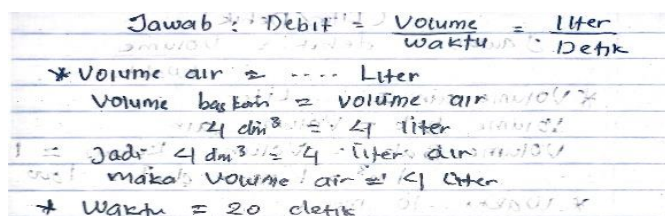 Jawab : Debit = Volume / Waktu = liter / Detik
* Volume air = .... Liter
Volume baskom = volume air
4 dm³ = 4 liter
= Jadi 4 dm³ = 4 liter air
maka volume air = 4 liter
* Waktu = 20 detik